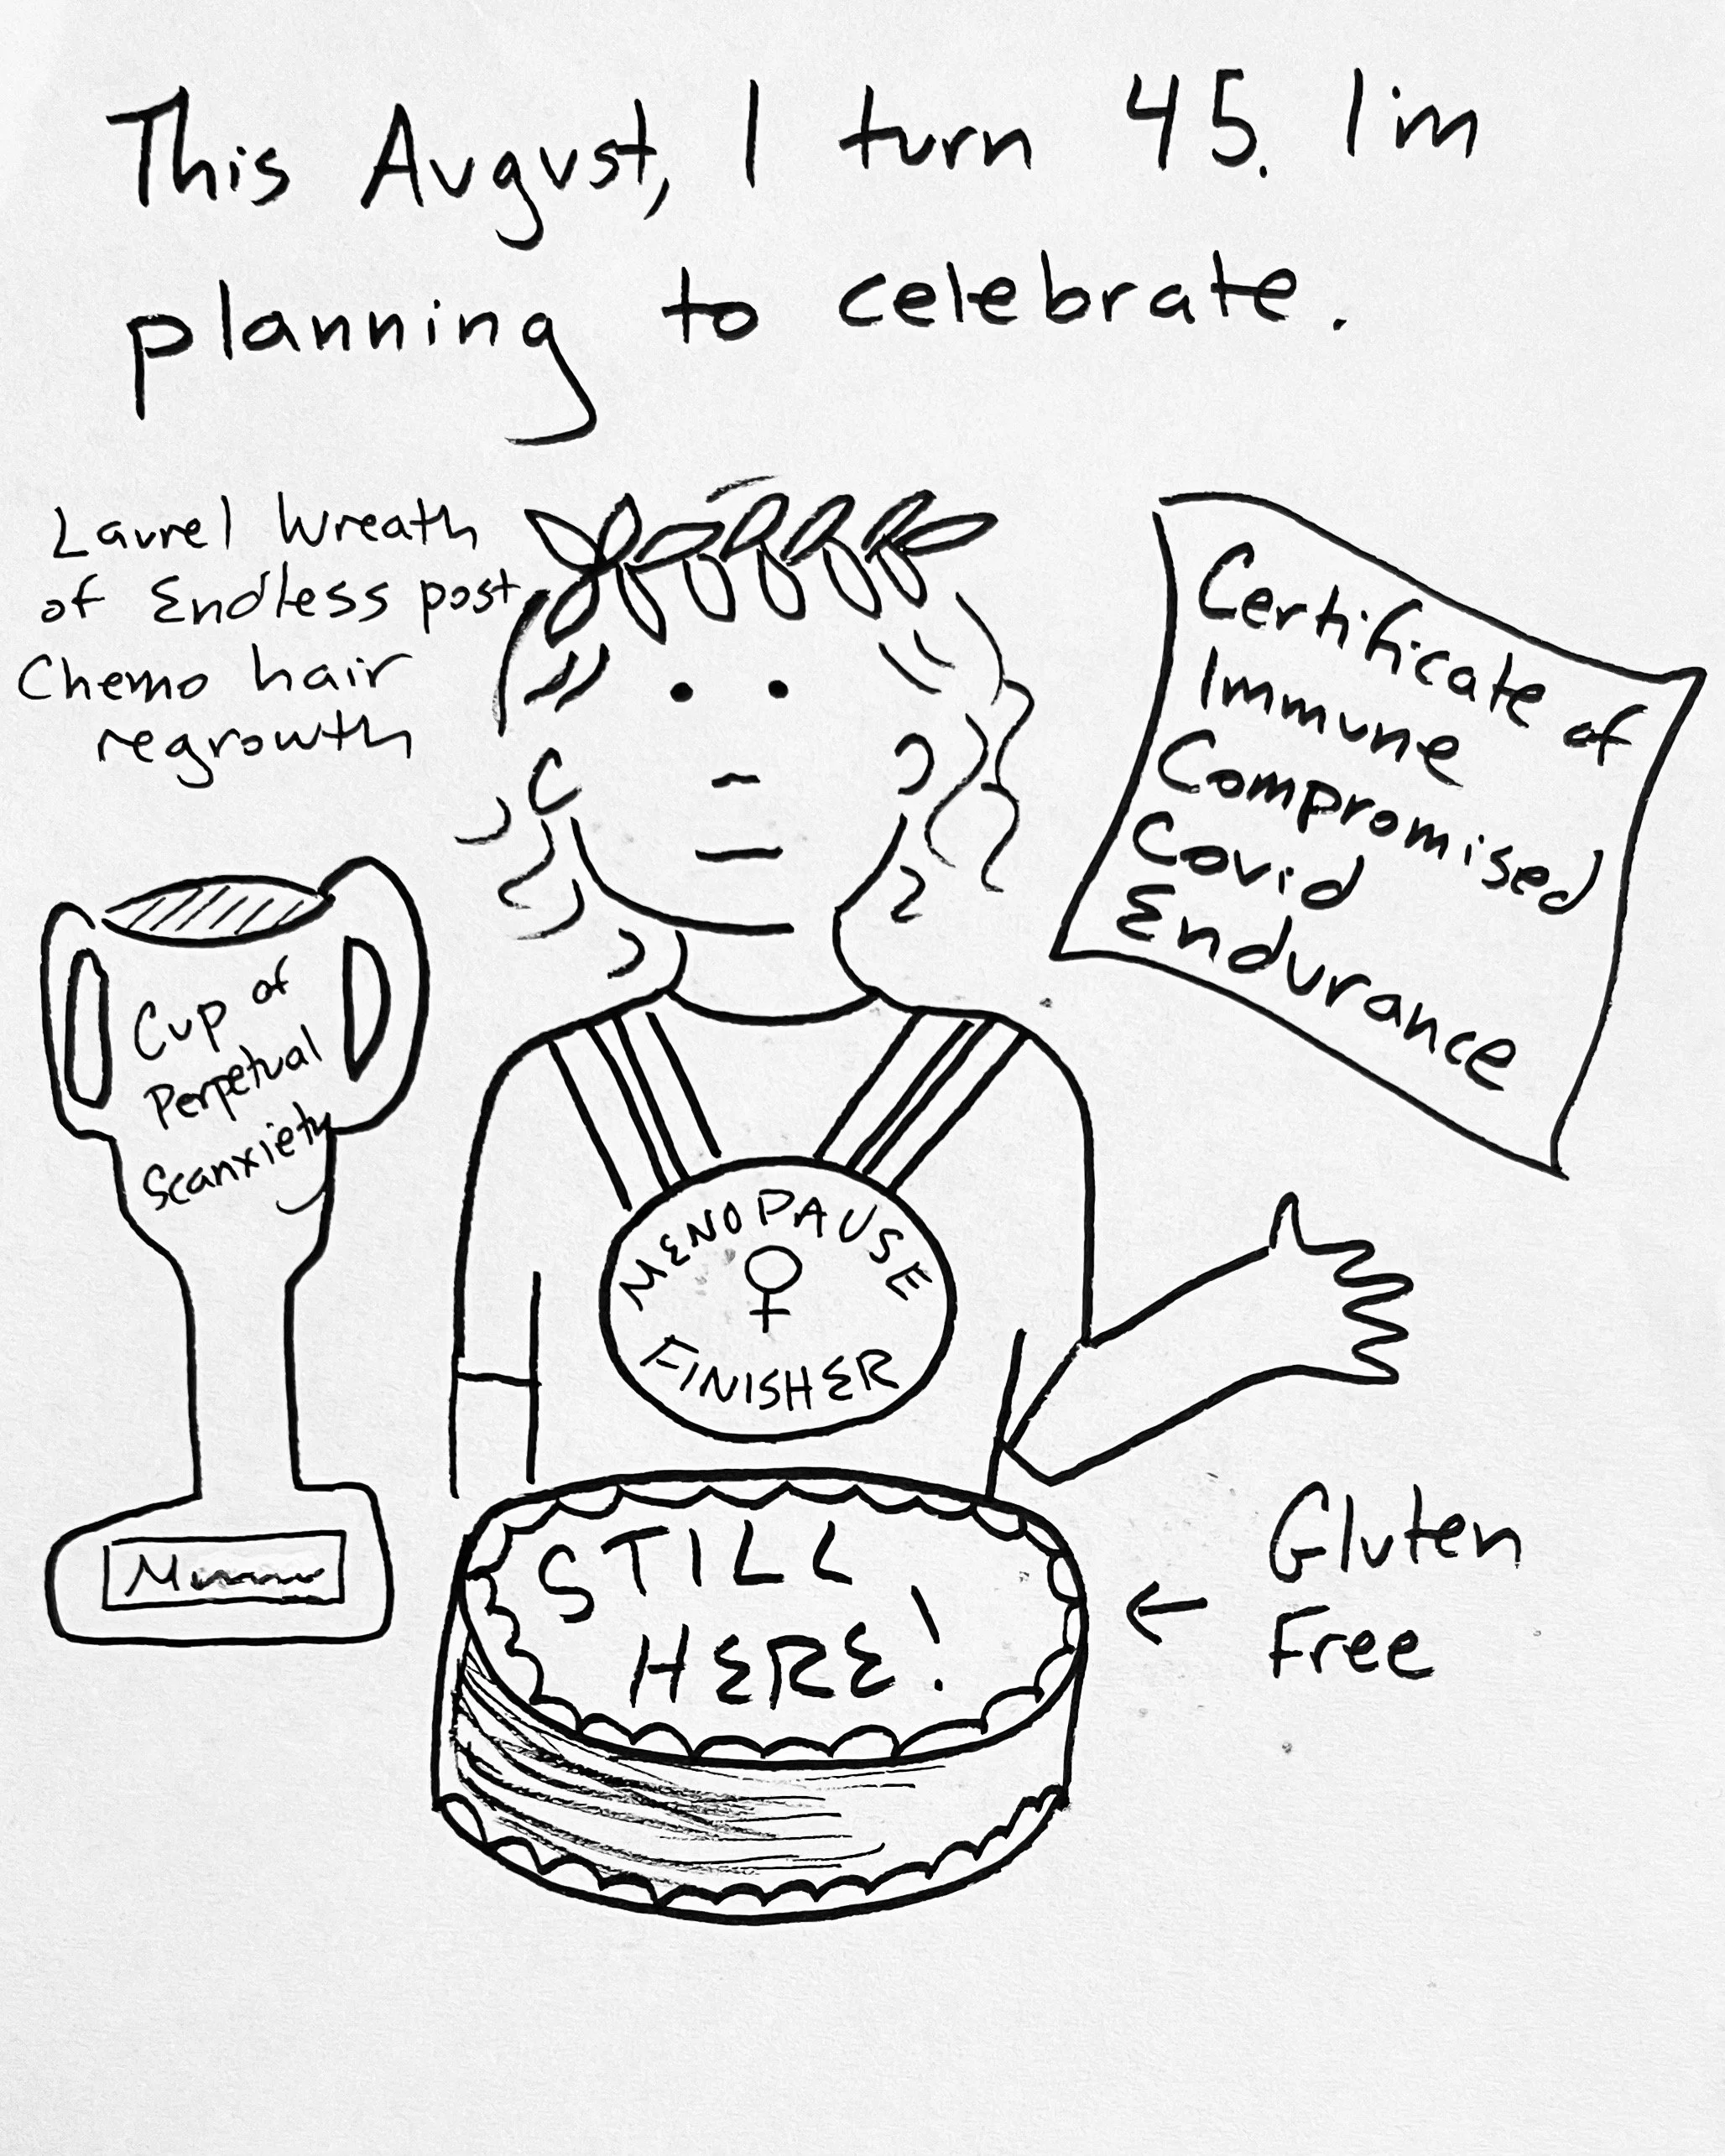 This August, I turn 45. I'm
planning to celebrate.
Laurel Wreath
of Endless post
Chemo hair
regrowth
Certificate of
Immune
Compromised
Covid
Endurance
Cup of
Perpetual
Scanxiety
MENOPAUSE
FINISHER
STILL
HERE!
Gluten
Free